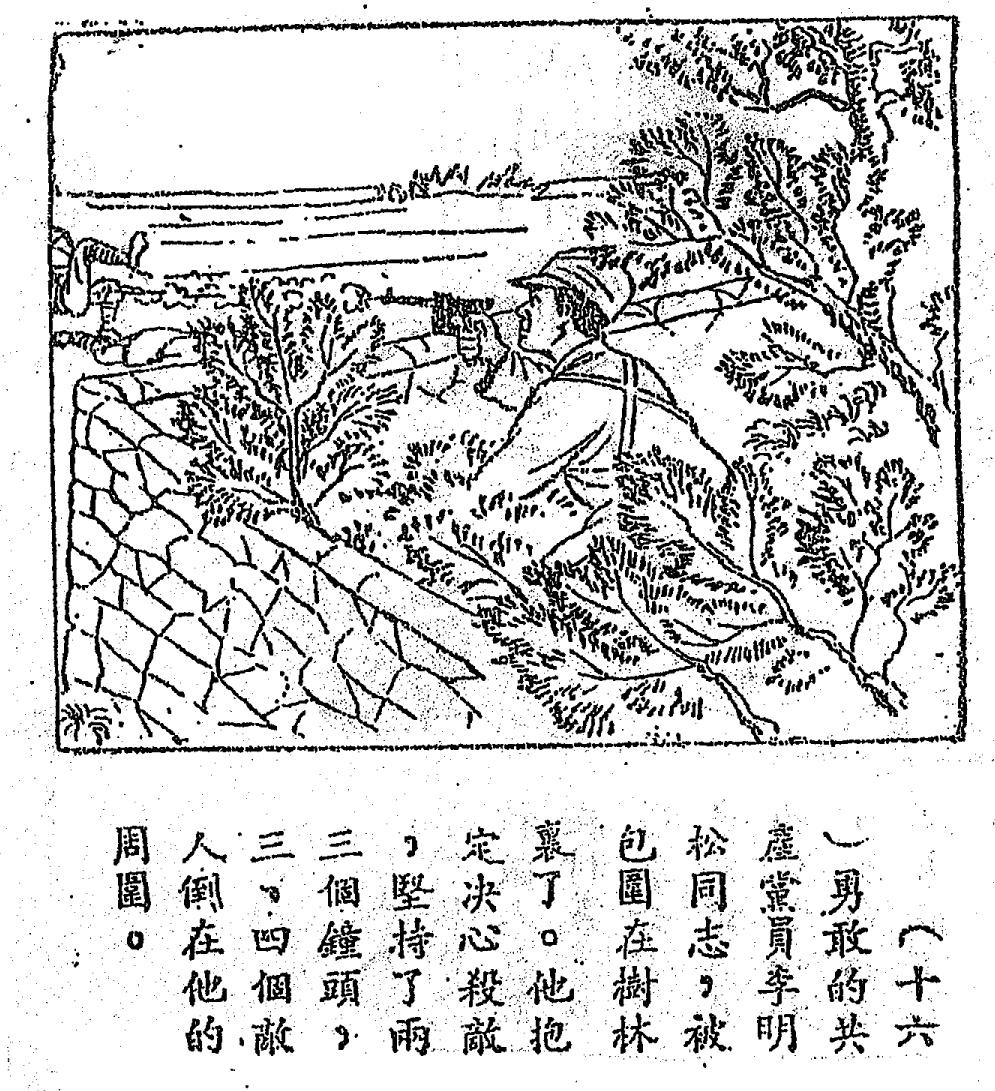 （十六
）勇敢的共
產黨員李明
松同志，被
包圍在樹林
裏了。他抱
定决心殺敵
，堅持了兩
三個鐘頭，
三、四個敵
人倒在他的
周圍。